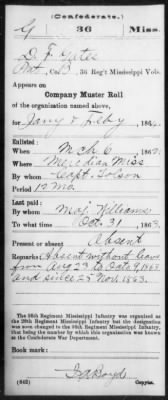 (Confederate.)
G 36 Miss.
D. F. Yates
Pvt., Co. B, 36 Reg't Mississippi Vols.
Appears on
Company Muster Roll
of the organization named above,
for Jany & Feby, 1864.
Enlisted:
When Mch 6, 1862.
Where Meridian Miss
By whom Capt. Tolson
Period 12 Mo.
Last paid:
By whom Maj. Williams
To what time Oct 31, 1863.
Present or absent Absent
Remarks: Absent without leave
from Aug 23 to Oct 9, 1863
and since 25 Nov. 1863.
The 36th Regiment Mississippi Infantry was organized as
the 29th Regiment Mississippi Infantry, but the designation
was soon changed to the 36th Regiment Mississippi Infantry,
that being the number by which this organization was known
at the Confederate War Department.
Book mark:
(642) Copyist.